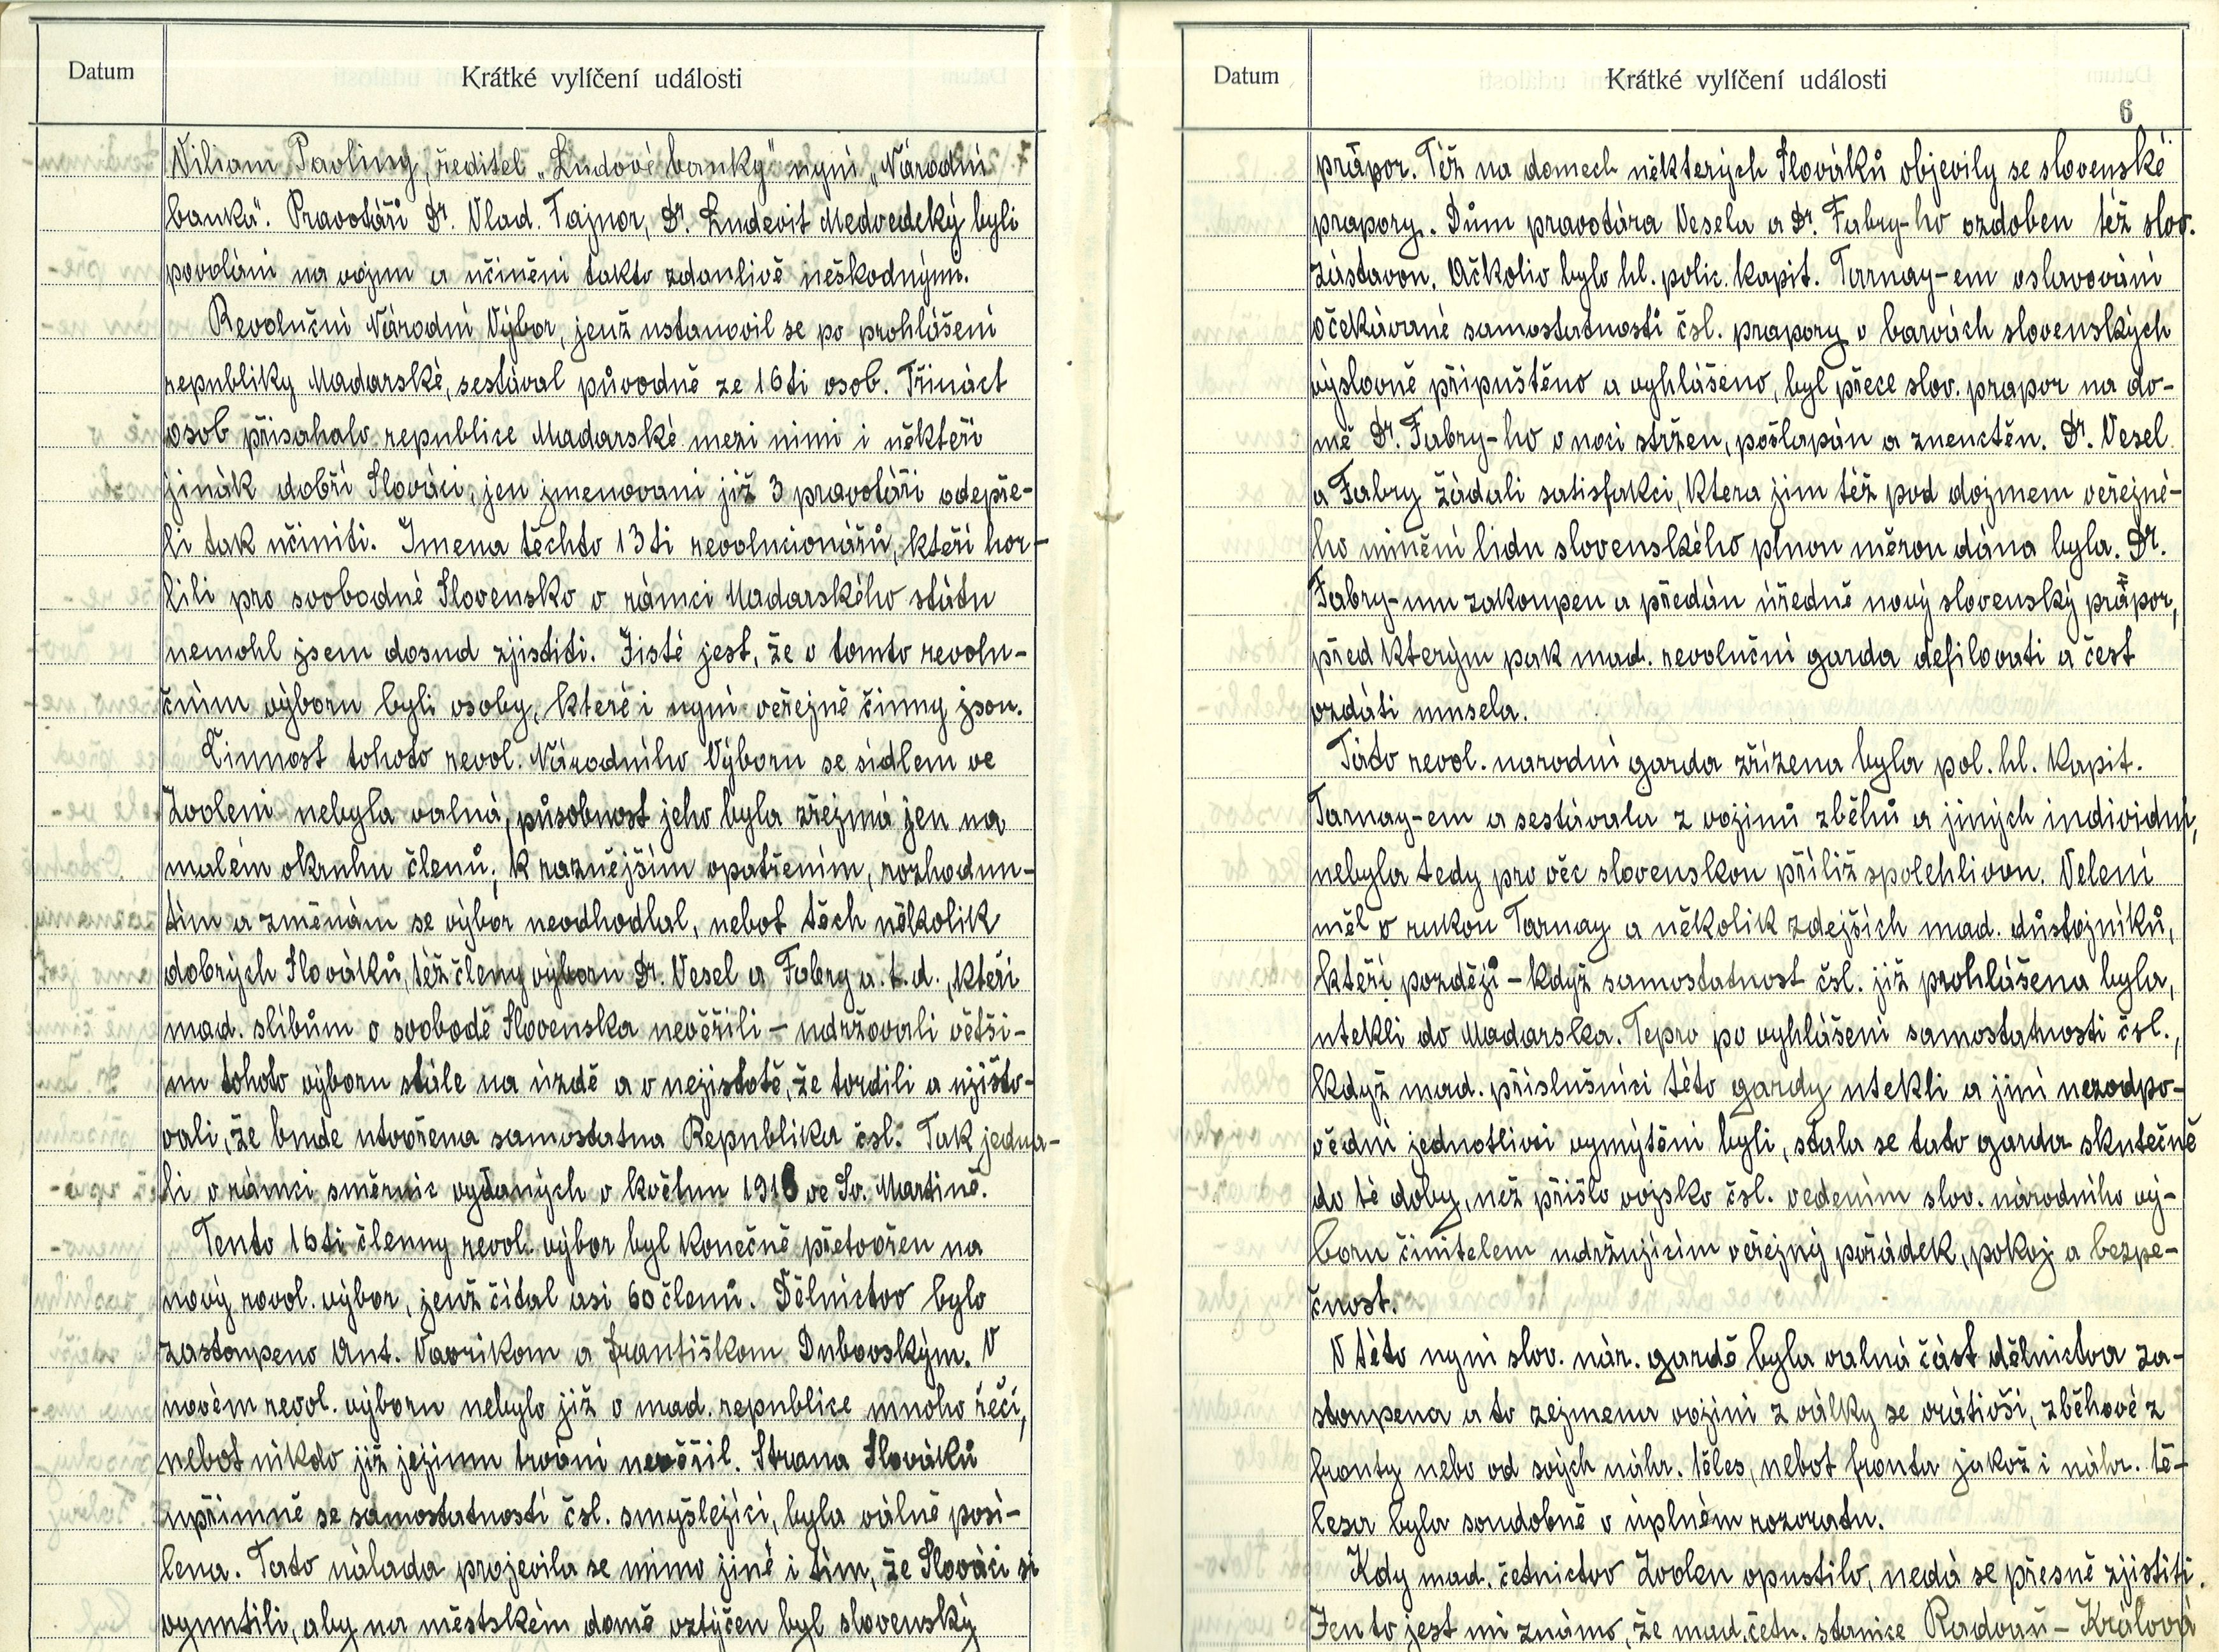 Datum
Krátké vylíčení události
Viliam Pavliny, ředitel „Ludové banky" nyní „Národní
banka". Pravotáři Dr. Vlad. Fajnor, Dr. Ludevit Medvedeký byli
povoláni na vojnu a učiněni takto zdanlivě neškodnými.
Revoluční Národní Výbor, jenž ustanovil se po prohlášení
republiky Madarské, sestával původně ze 16ti osob. Třináct
osob přisahalo republice Madarské mezi nimi i někteři
jinák dobří Slováci, jen jmenovaní již 3 pravotáři odepře-
li tak učiniti. Jmena těchto 13ti revolucionářů, kteří hor-
lili pro svobodné Slovensko v rámci Madarského státu
nemohl jsem dosud zjistiti. Jisté jest, že v tomto revolu-
čním výboru byli osoby, které i nyní veřejně činny jsou.
Činnost tohoto revol. Národního Výboru se sídlem ve
Zvoleni nebyla valná, působnost jeho byla zřejmá jen na
malém okruhu členů; k raznějším opatřením, rozhodnu-
tím a změnám se výbor neodhodlal, nebot těch několik
dobrých Slováků, též členy výboru Dr. Vesel a Fabry a. t. d., kteři
mad. slibům o svobodě Slovenska nevěřili – udržovali větši-
nu tohoto výboru stále na úzdě a v nejistotě, že tvrdili a ujišťo-
vali, že bude utvořena samostatna Republika čsl. Tak jedna-
li v rámci směrnic vydaných v květnu 1918 ve Sv. Martině.
Tento 16ti členny revol. výbor byl konečně přetvořen na
nový revol. výbor, jenž čítal asi 60 členů. Dělnictvo bylo
zastoupeno Ant. Vavrikom a Františkom Dubovským. V
novém revol. výboru nebylo již o mad. republice mnoho řečí,
nebot nikdo již jejimu trvání nevěřil. Strana Slováků
upřimně se samostatností čsl. smýšlejíci, byla válně posi-
lena. Tato nálada projevila se mimo jiné i tím, že Slováci si
vynutili, aby na městském domě vztýčen byl slovenský
Datum
Krátké vylíčení události
6
prápor. Též na domech některých Slováků objevily se slovenské
prapory. Dům pravotára Vesela a Dr. Fabry-ho ozdoben též slov.
zástavou. Ačkoliv bylo hl. polic. kapit. Tarnay-em oslavování
očekávané samostatnosti čsl. prapory v barvách slovenských
výslovně připuštěno a vyhlášeno, byl přece slov. prapor na do-
mě Dr. Fabry-ho v noci stržen, pošlapán a zneuctěn. Dr. Vesel
a Fabry žádali satisfakci, ktera jim též pod dojmem veřejné-
ho minění lidu slovenského plnou měrou dána byla. Dr.
Fabry-mu zakoupen a předán úředně nový slovenský prápor,
před kterým pak mad. revoluční garda defilovati a čest
vzdáti musela.
Táto revol. narodní garda zřízena byla pol. hl. kapit.
Tarnay-em a sestávala z vojinů zběhů a jiných individuí,
nebyla tedy pro věc slovenskou příliž spolehlivou. Velení
měl v rukou Tarnay a několik zdejších mad. důstojníků,
kteří pozdějí – když samostatnost čsl. již prohlášena byla,
utekli do Madarska. Tepro po vyhlášení samostatnosti čsl.,
když mad. přislušníci této gardy utekli a jiní nezodpo-
vědní jednotlivci vymýtěni byli, stala se tato garda skutečně
do té doby, než přišlo vojsko čsl. vedením slov. národního vý-
boru činitelem udržujícím veřejný pořádek, pokoj a bezpe-
čnost.
V této nyní slov. nár. gardě byla valná část dělnictva za-
stoupena a to zejmena vojini z války se vrátivši, zběhové z
fronty nebo od svých náhr. těles, nebot fronta jakož i náhr. tě-
lesa byla soudobně v úplném rozvratu.
Kdy mad. četnictvo Zvolen opustilo, nedá se přesně zjistiti.
Jen to jest mi známo, že mad. četn. stanice Radvaň – Králová